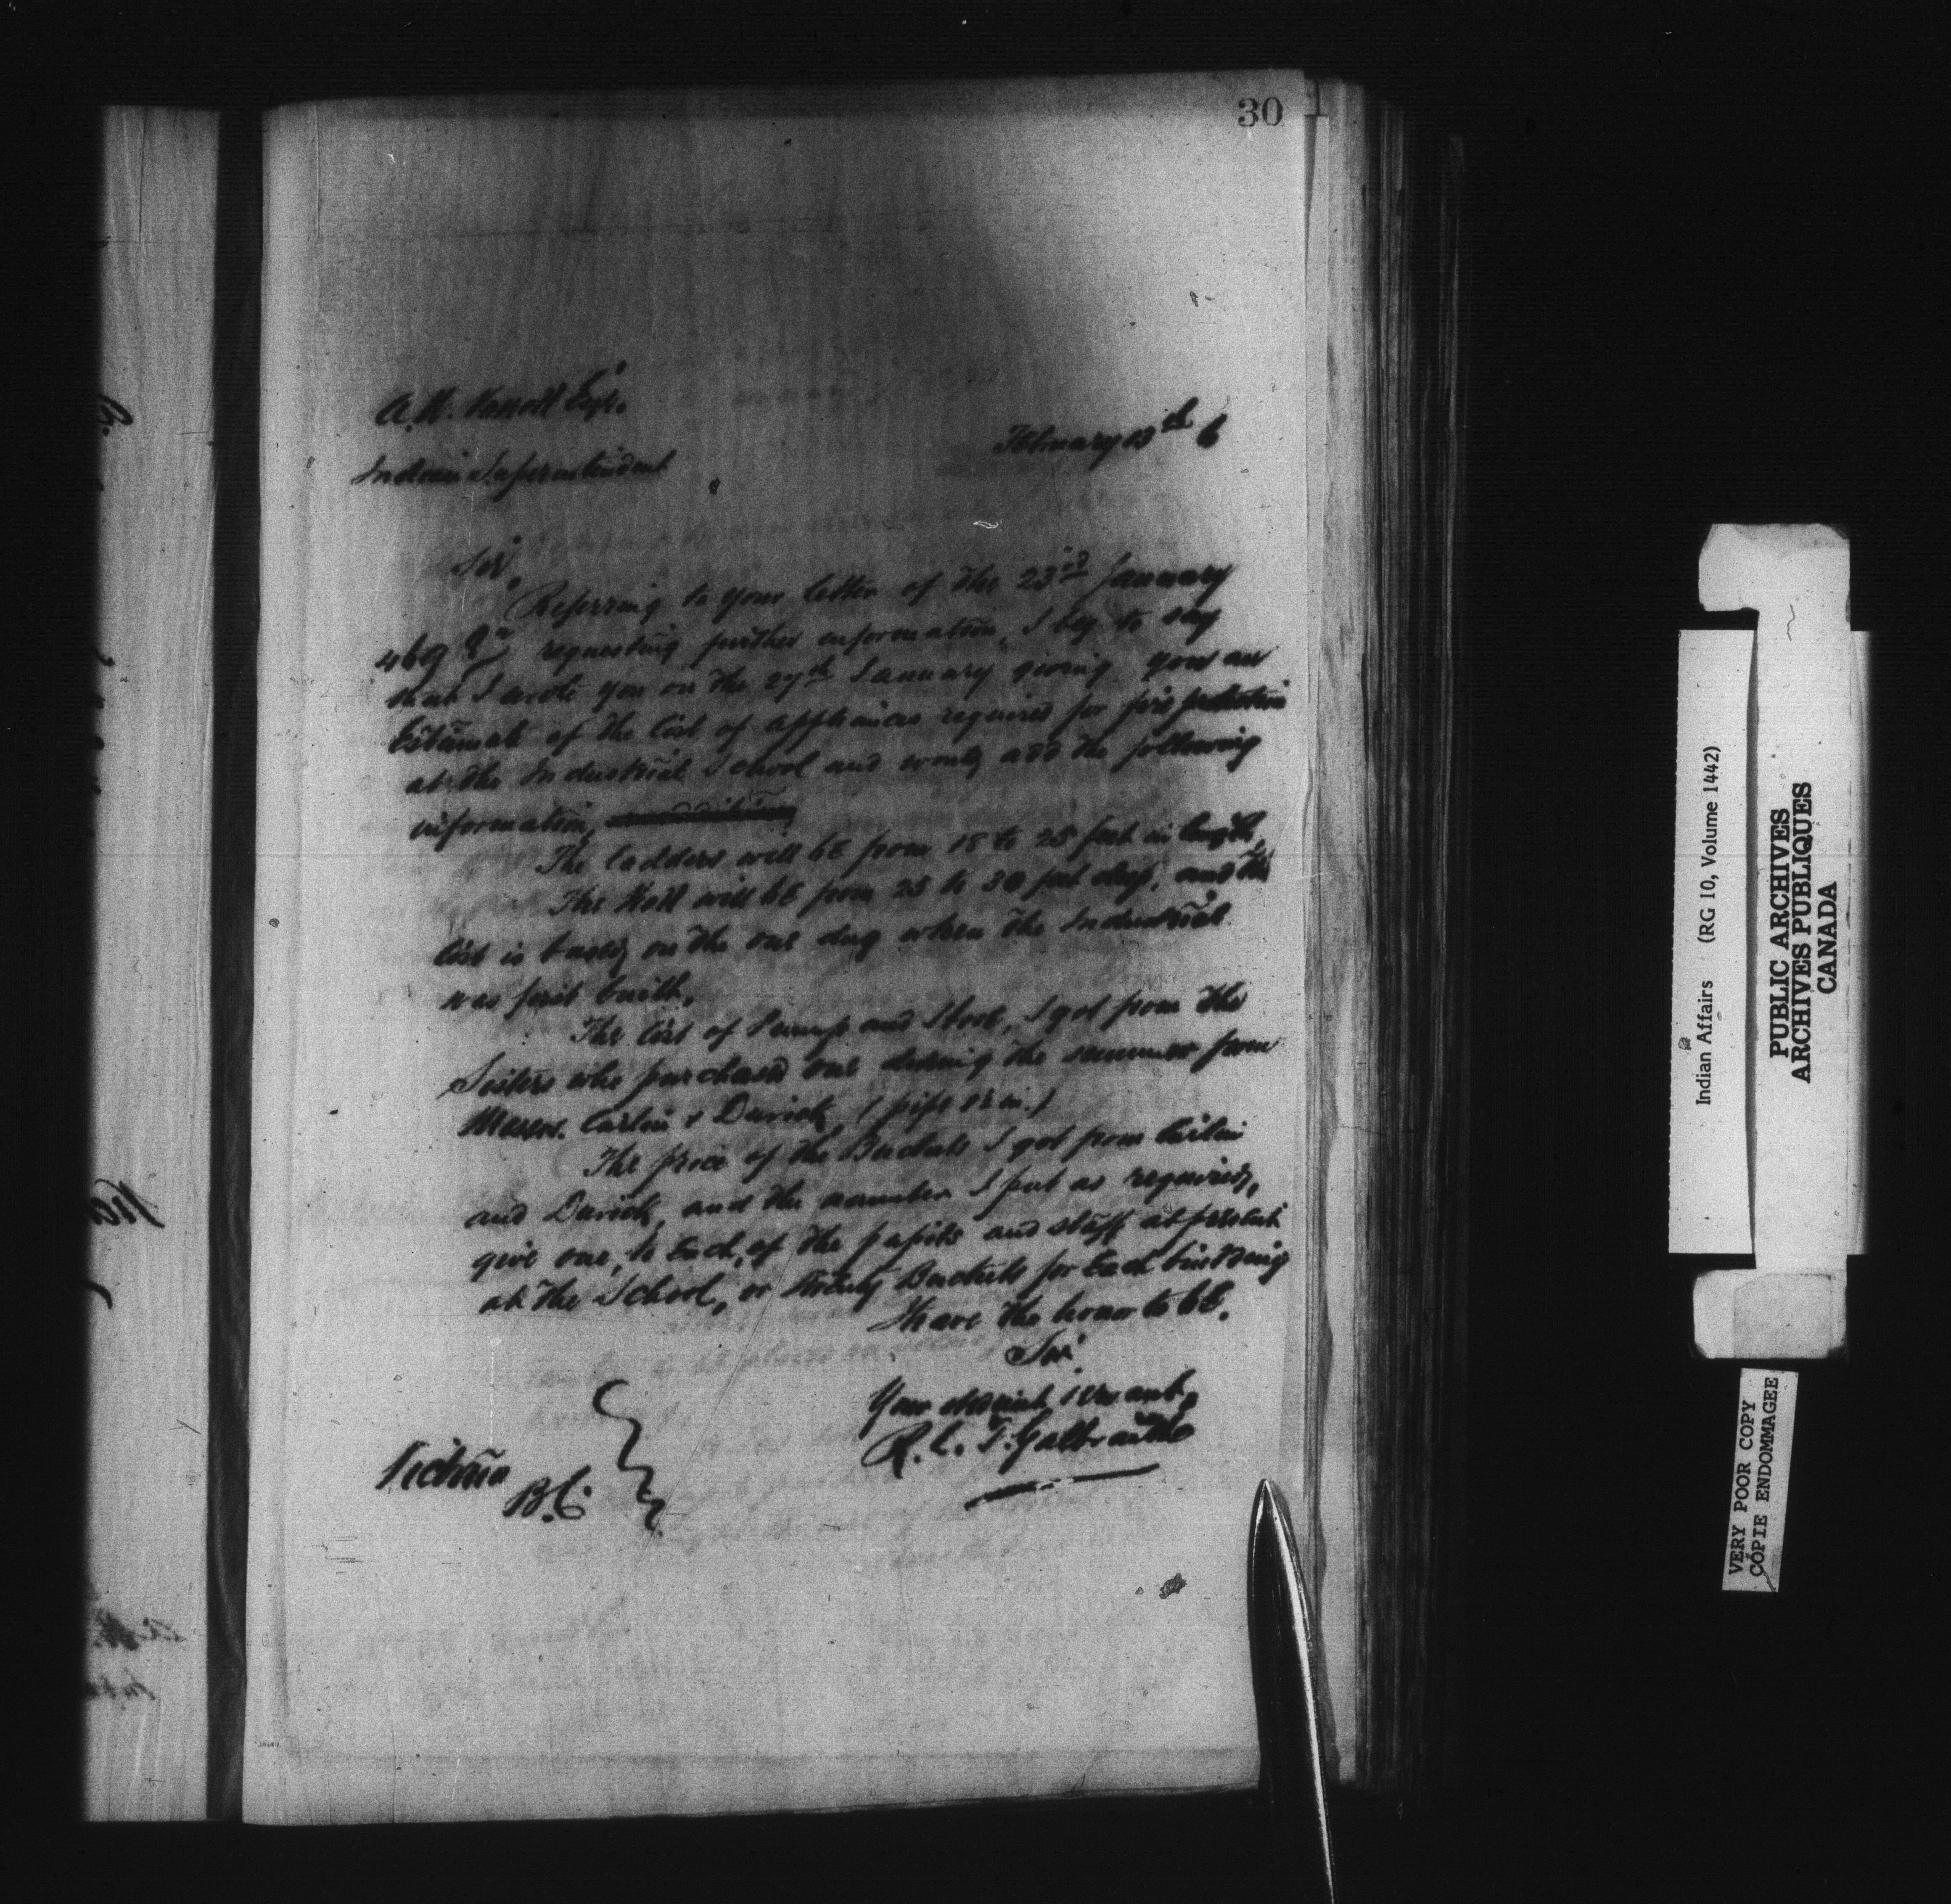 30
A. W. Vowell Esq.
February 13th 6
Indian Superintendent
Sir,
Referring to your letter of the 23rd January
requesting further information, I beg to say
that I wrote you on the 27th January giving you an
Estimate of the Cost of appliances required for fire protection
at the Industrial School and would add the following
information,
The ladders will bE from 18 to 25 feet in length,
The Well will bE from 25 to 30 feet deep, and the
Cost is based on the one dug when the Industrial
was first built,
The Cost of Pump and Stock, I got from the
Sisters who purchased one during the summer from
Messrs. Carlin & Durick, (pipe 1½ in.)
The price of the Buckets I got from Carlin
and Durick, and the number I put as required,
give one, to Each, of the pupils and staff at present
at the School, or Twenty Buckets for Each building
I have the honor to bE.
Sir
Your obedient servant,
R. L. T. Galbraith
Victoria
B.C.
Indian Affairs (RG 10, Volume 1442)
PUBLIC ARCHIVES
ARCHIVES PUBLIQUES
CANADA
VERY POOR COPY
COPIE ENDOMMAGEE